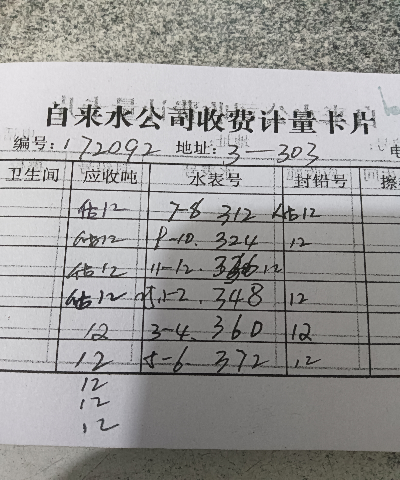 自来水公司收费计量卡片
编号:172092 地址:3-303 电
卫生间 应收吨 水表号 封铅号 擦
估12 7-8 312 估12
估12 9-10. 324 12
估12 11-12. 336 12
估12 1-2. 348 12
12 3-4. 360 12
12 5-6. 372 12
12
12
12